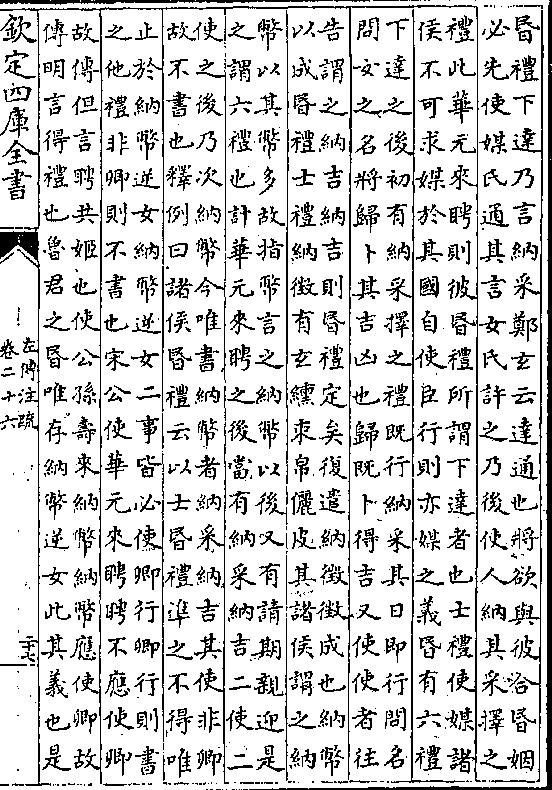 昏禮下達乃言納采鄭玄云達通也將欲與彼合昏姻
必先使媒氏通其言女氏許之乃後使人納其采擇之
禮此華元來聘則彼昏禮所謂下達者也士禮使媒諸
侯不可求媒於其國自使臣行則亦媒之義昏有六禮
下達之後初有納采擇之禮既行納采其日即行問名
問女之名將歸卜其吉凶也歸既卜得吉又使使者往
告謂之納吉納吉則昏禮定矣復遣納徵徵成也納幣
以成昏禮士禮納徵有玄纁束帛儷皮其諸侯謂之納
幣以其幣多故指幣言之納幣以後又有請期親迎是
之謂六禮也計華元來聘之後當有納采納吉二使二
使之後乃次納幣今唯書納幣者納采納吉其使非卿
故不書也釋例曰諸侯昏禮云以士昏禮準之不得唯
止於納幣逆女納幣逆女二事皆必使卿行卿行則書
之他禮非卿則不書也宋公使華元來聘聘不應使卿
故傳但言聘共姬也使公孫壽來納幣納幣應使卿故
傳明言得禮也魯君之昏唯存納幣逆女此其義也是
欽定四庫全書
左傳注疏
卷二十六